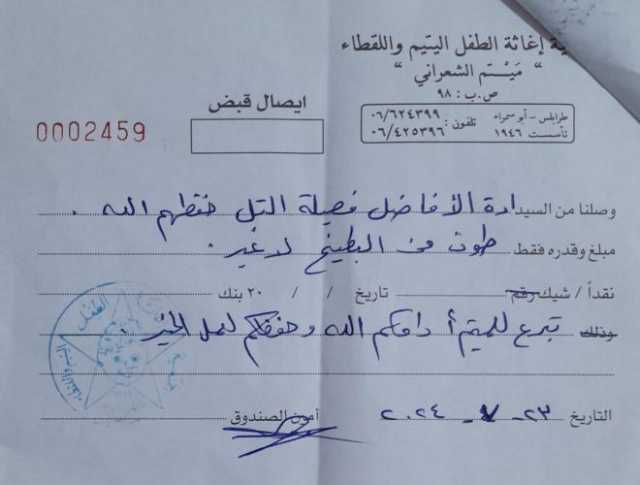 ية إغاثة الطفل اليتيم واللقطاء
" مَيْتم الشعراني "
ص.ب: ٩٨
ايصال قبض
طرابلس - أبو سمراء تلفون: ٠٦/٦٢٤٣٩٩
تأسست ١٩٤٦ ٠٦/٤٢٥٣٩٦
0002459
وصلنا من السيد ادة الأفاضل فصيلة التل حفظهم الله .
مبلغ وقدره فقط طون من البطيخ لا غير .
نقداً / شيك رقم تاريخ / / ٢٠ بنك
وذلك تبرع للميتم أدامكم الله وحفظكم لعمل الخير .
التاريخ ٢٣ - ٧ - ٢٠٢٤ أمين الصندوق
الطفل